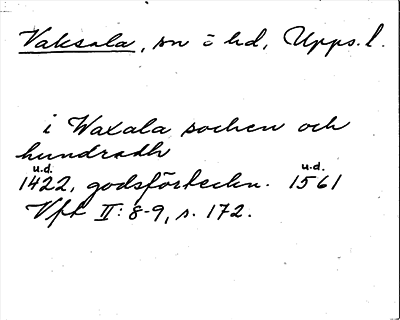 Vaksala, sn o hd, Upps. l.
i Waxala sochen och
hundradh
u.d. u.d.
1422, godsförteckn. 1561
Vft II: 8-9, s. 172.